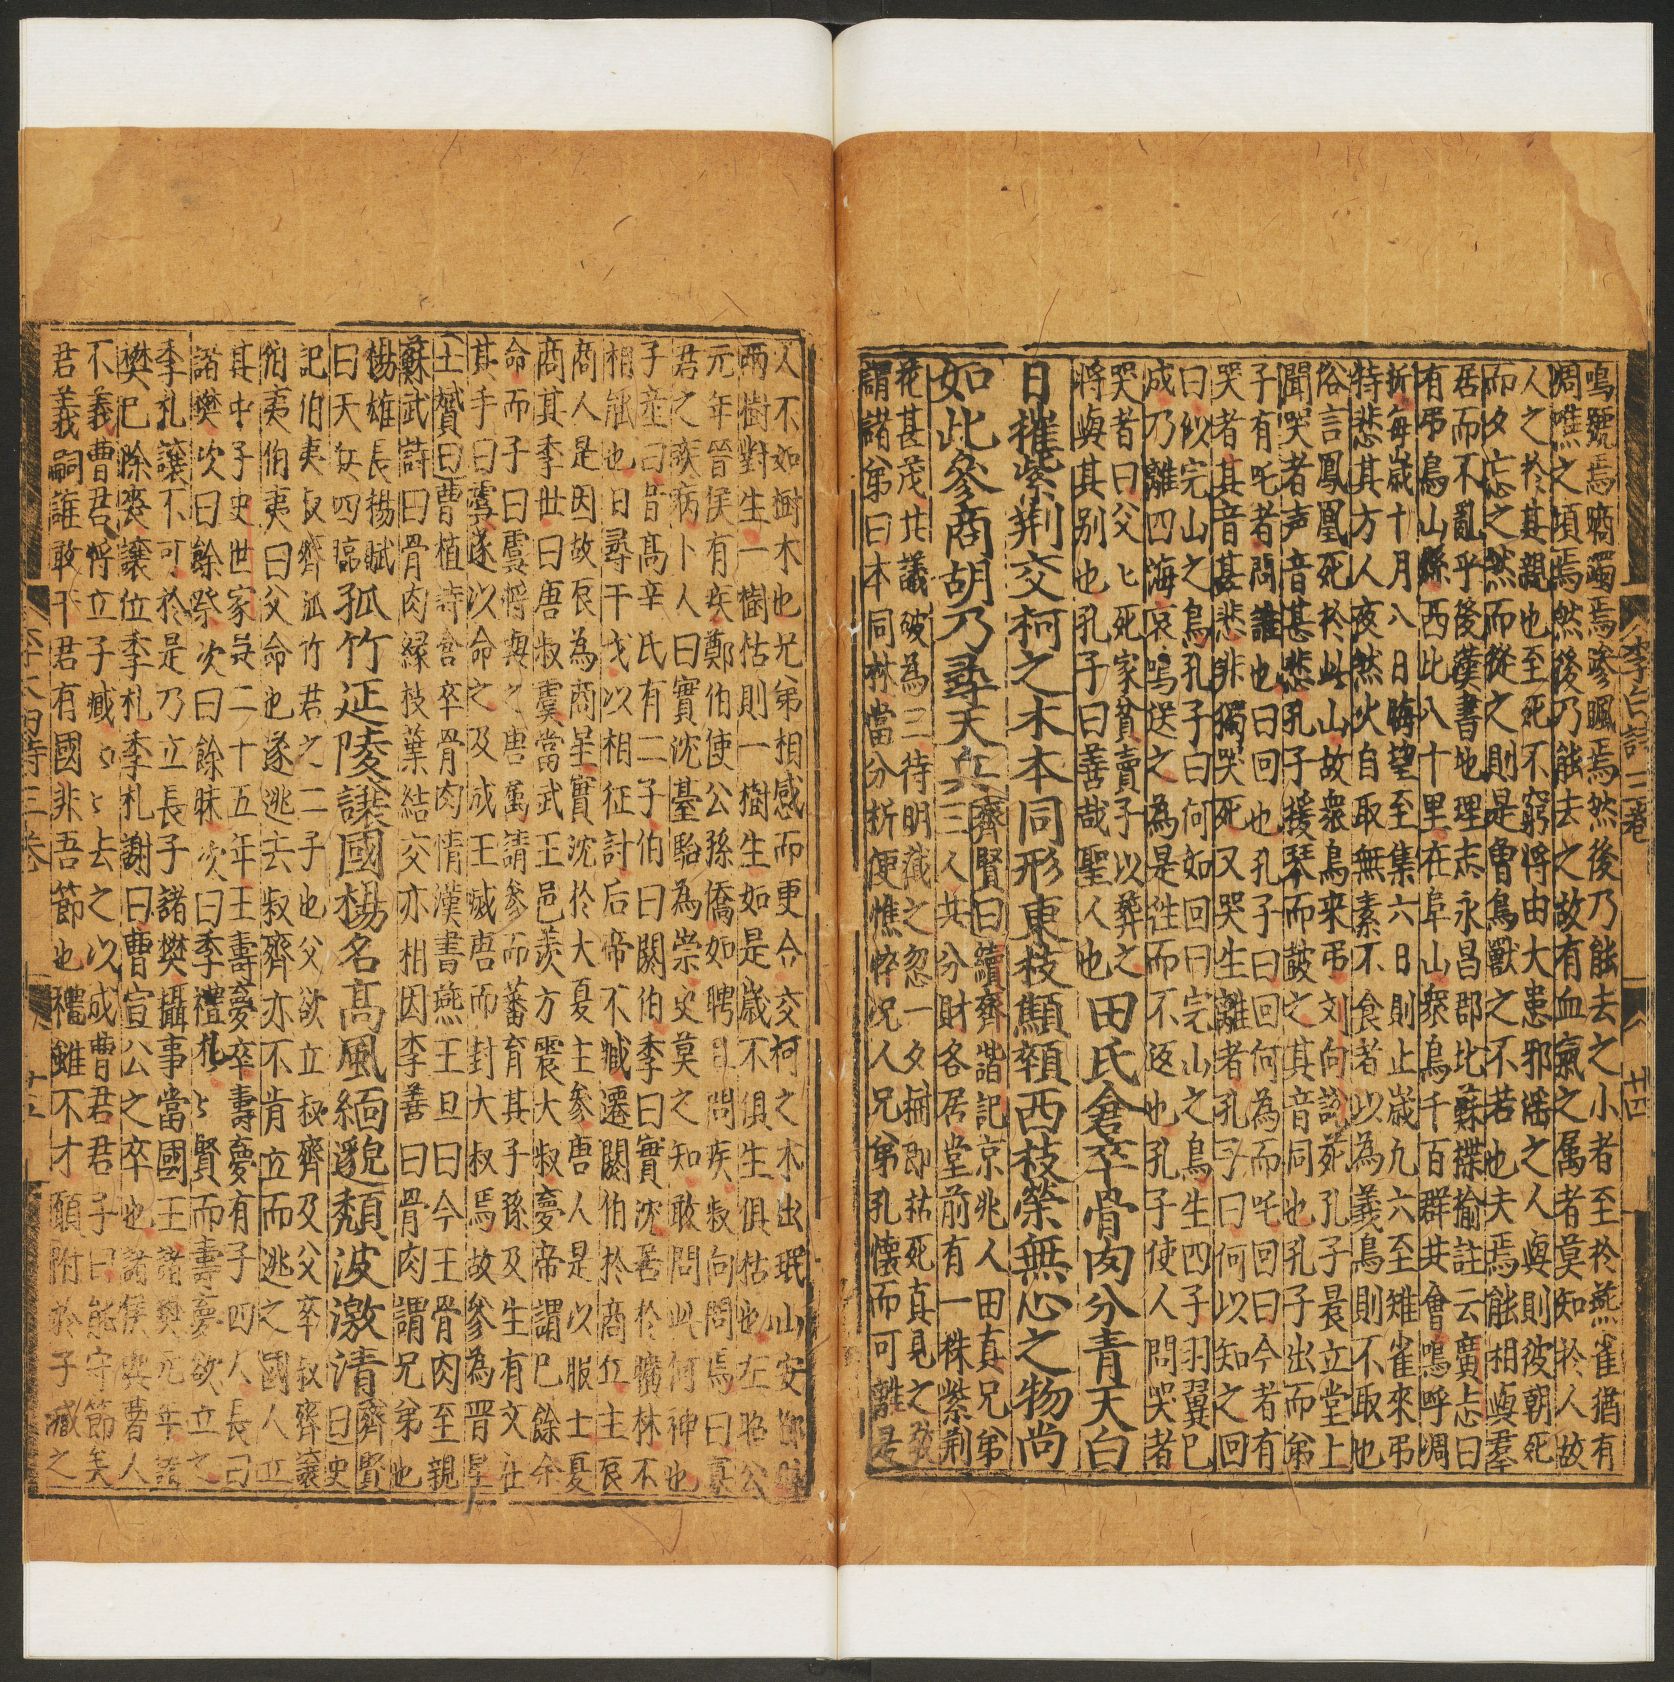 鳴號焉蹢躅焉踟躕焉然後乃能去之小者至於燕雀猶有
啁噍之頃焉然後乃能去之故有血氣之属者莫知於人故
人之於其親也至死不窮将由大患邪滛之人與則彼朝死
而夕忘之然而從之則是曾鳥獸之不若也夫焉能相與羣
居而不亂乎後漢書地理志永昌郡比蘇楪榆註云廣志曰
有吊鳥山縣西北八十里在阜山衆鳥千百群共會鳴呼啁
折每歲十月八日晦望至集六日則止歲九六至雉雀來吊
特悲其方人夜然火自取無素不食者以為義鳥則不取也
俗言鳳凰死於此山故衆鳥来吊刘向說苑孔子晨立堂上
聞哭者声音甚悲孔子援琴而鼓之其音同也孔子出而弟
子有吒者問誰也曰回也孔子曰回何為而吒回曰今者有
哭者其音甚悲非獨哭死又哭生離者孔子曰何以知之回
曰似完山之鳥孔子曰何如回曰完山之鳥生四子羽翼已
成乃離四海哀鳴送之為是徃而不返也孔子使人問哭者
哭者曰父匕死家貧賣子以葬之
将與其别也孔子曰善哉聖人也
田氏倉卒骨肉分青天白
日摧紫荆交柯之木本同形東枝顦顇西枝榮無心之物尚
如此參商胡乃尋天兵
齊賢曰續齊諧記京兆人田真兄弟
三人共分財各居堂前有一株紫荆
花甚茂共議破為三待明截之忽一夕𣗳即枯死真見之
謂諸弟曰本同林當分析便憔悴况人兄弟孔懷而可離是
人不如樹木也兄弟相感而更合交柯之木出岷山安
两樹對生一樹枯則一樹生如是歲不俱生俱枯也左昭公
元年晉侯有疾鄭伯使公孫僑如聘且問疾叔向問焉曰寡
君之疾病卜人曰實沈臺駘為祟史莫之知敢問此何神也
子産曰昔髙辛氏有二子伯曰閼伯季曰實沈居於曠林不
相能也日尋干戈以相征討后帝不臧遷閼伯於商丘主辰
商人是因故辰為商星實沈於大夏主參唐人是以服士夏
商其季世曰唐叔虞當武王邑姜方震大叔夢帝謂已余
命而子曰虞將與之唐萬請參而蕃育其子孫及生有文在
其手曰虞遂以命之及成王滅唐而封大叔焉故參為晋星
士贇曰曹植詩倉卒骨肉情漢書燕王旦曰今王骨肉至親
蘇武詩曰骨肉緣枝葉結交亦相因李善曰骨肉謂兄弟也
楊雄長楊賦
曰天兵四臨
孤竹延陵讓國楊名髙風緬邈頽波激清
齊賢
曰史
記伯夷叔齊孤竹君之二子也父欲立叔齊及父卒叔齊讓
伯夷伯夷曰父命也遂逃去叔齊亦不肯立而逃之國人立
其中子史世家吴二十五年王壽夢卒壽夢有子四人長曰
諸樊次曰餘祭次曰餘昧次曰季禮札ヒ賢而壽夢欲立之
季札讓不可於是乃立長子諸樊攝事當國王諸樊元年諸
樊已除丧讓位季札季札謝曰曹宣公之卒也諸侯與曹人
不義曹君將立子臧ヒヒ去之以成曹君君子曰能守節矣
君義嗣誰敢干君有國非吾節也禮雖不才願附於子臧之
李白詩三巻
廿四